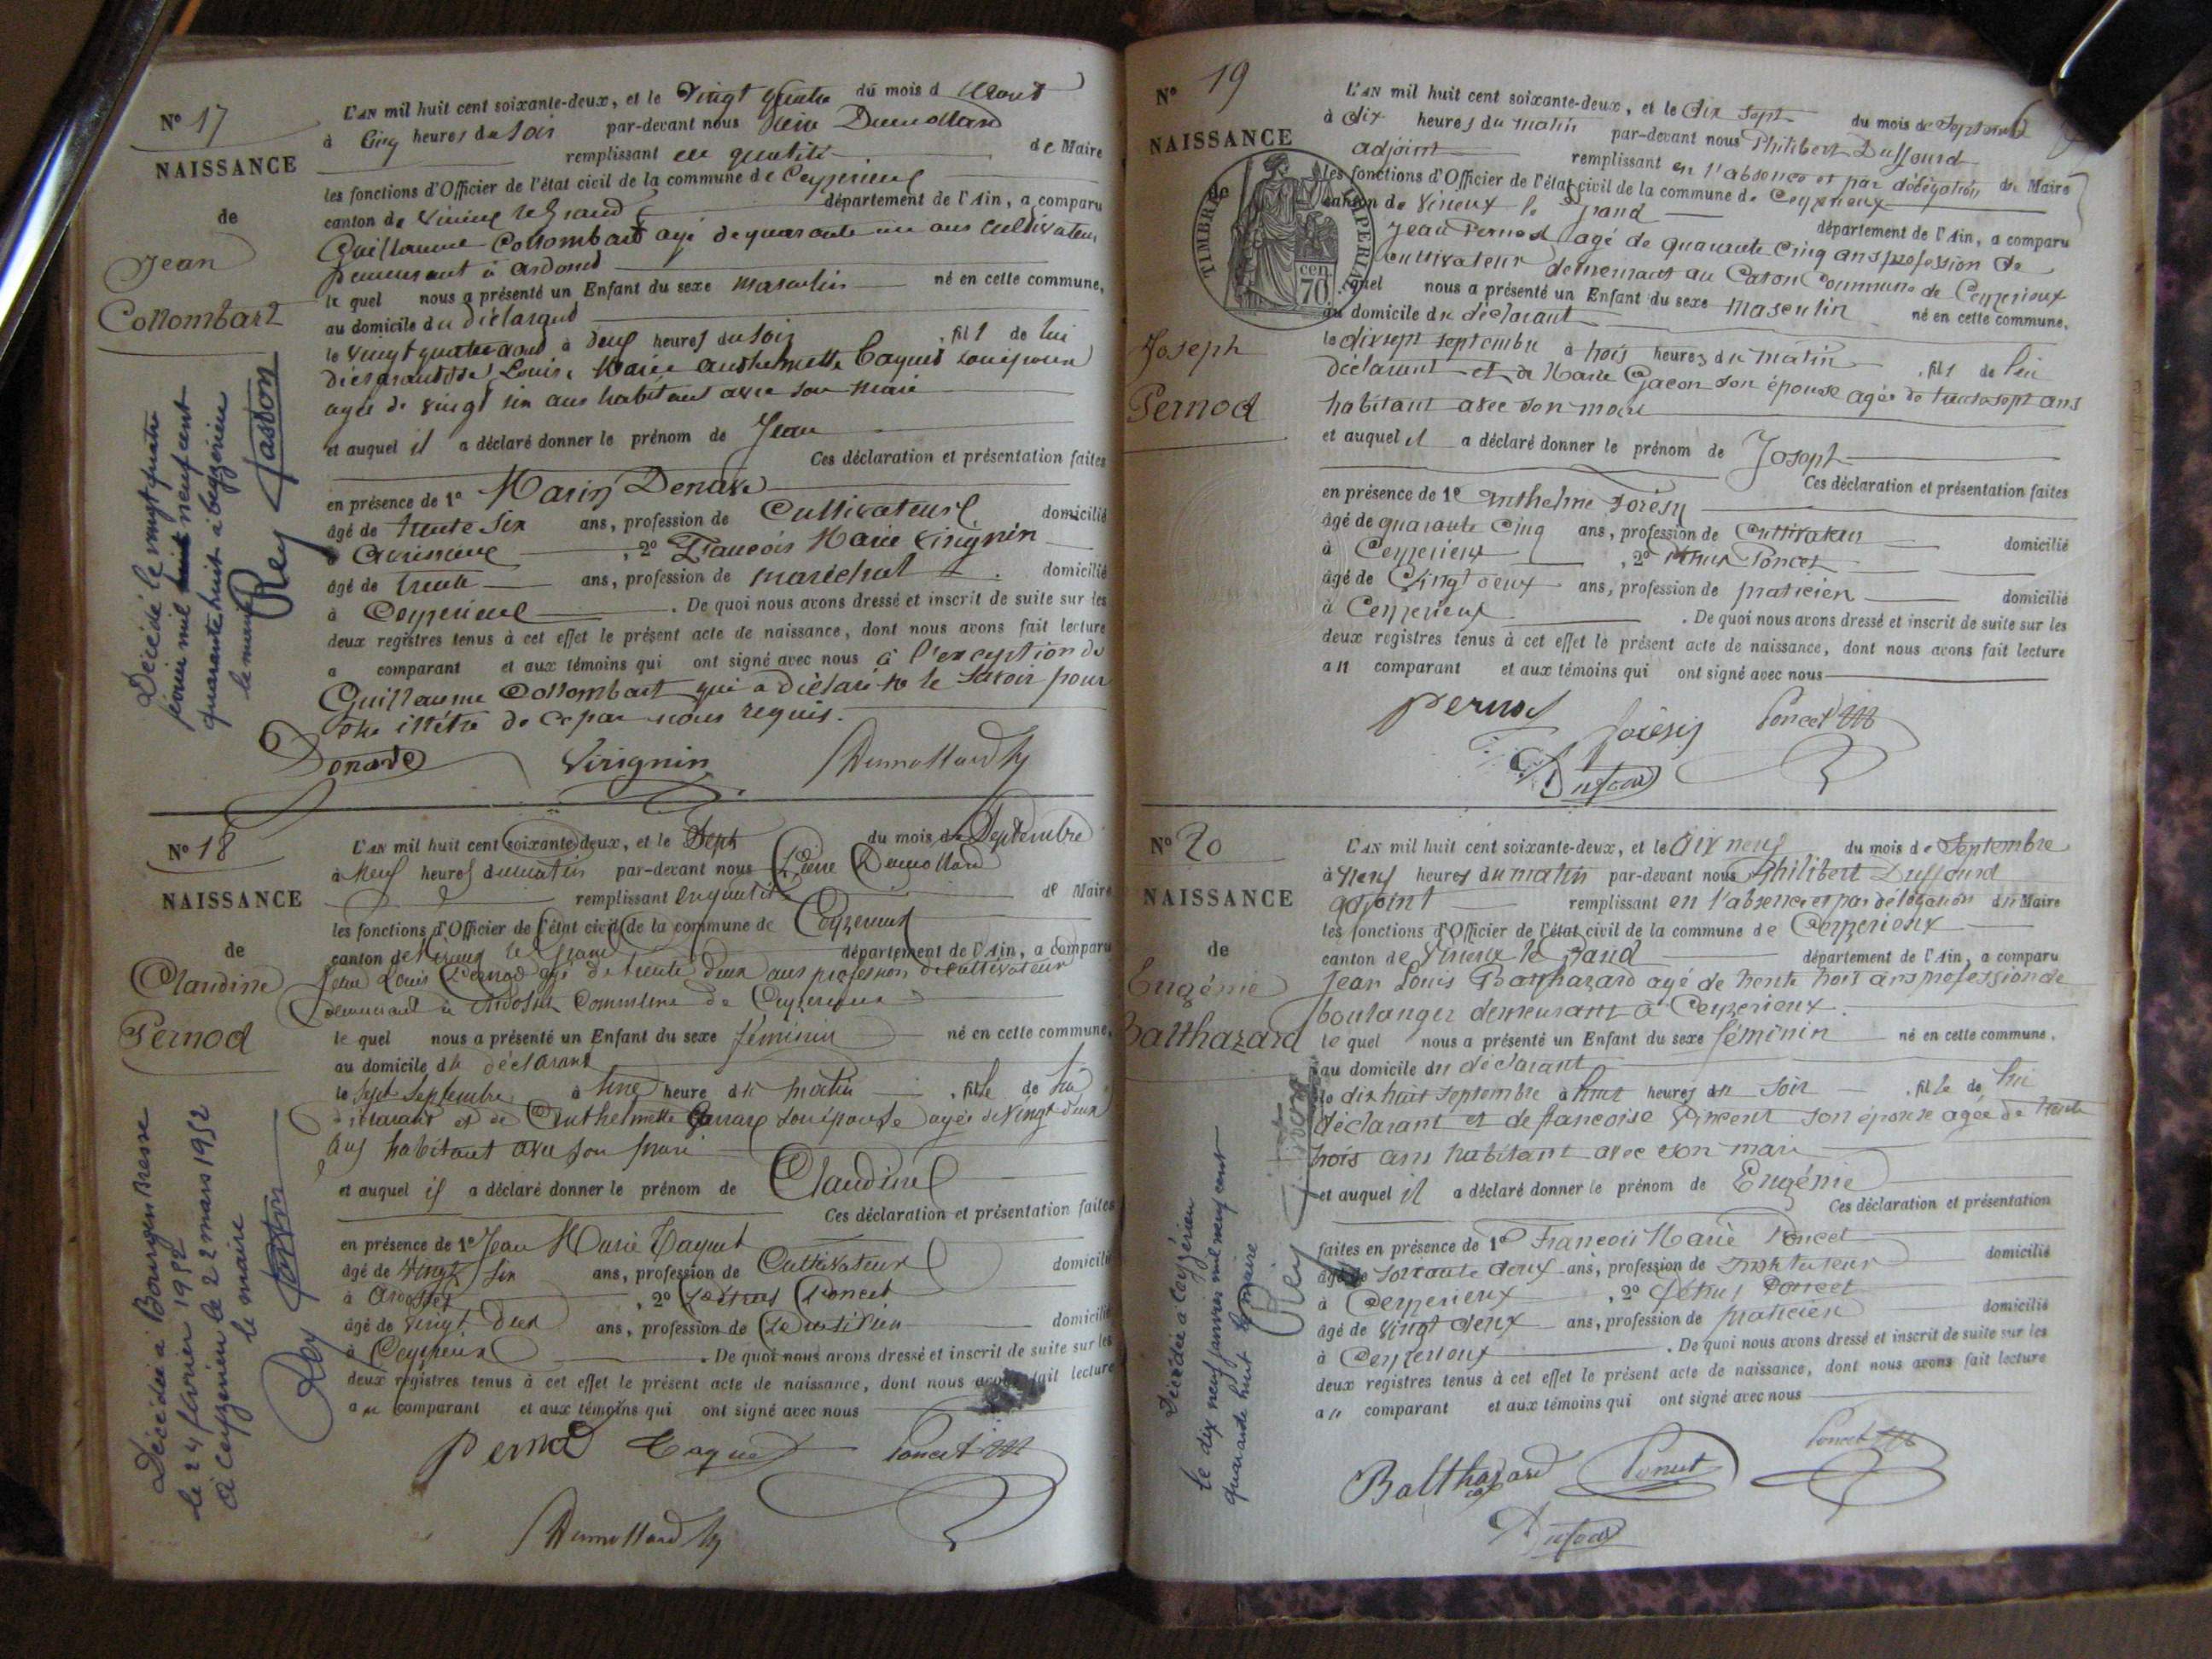 N° 17
NAISSANCE
de
Jean
Collombart
L'AN mil huit cent soixante-deux, et le vingt quatre du mois d aout
à Cinq heures du soir par-devant nous Dumollard
remplissant en qualité de Maire
les fonctions d'Officier de l'état civil de la commune de Ceyzerieux
canton de Virieux le Grand département de l'Ain, a comparu
Guillaume Collombart agé de quarante un ans cultivateur
demeurant à
le quel nous a présenté un Enfant du sexe masculin né en cette commune,
au domicile du déclarant
le vingt quatre aout à deux heures du soir, fils de lui
déclarant et de Louise Marie Anthelmette son épouse
agée de vingt six ans habitant avec son mari
et auquel il a déclaré donner le prénom de Jean
Ces déclaration et présentation faites
en présence de 1° Marin
âgé de trente six ans, profession de Cultivateur domicilié
à , 2° François Marie Virignin
âgé de trente ans, profession de maréchal domicilié
à Ceyzerieux. De quoi nous avons dressé et inscrit de suite sur les
deux registres tenus à cet effet le présent acte de naissance, dont nous avons fait lecture
a comparant et aux témoins qui ont signé avec nous à l'exception de
Guillaume Collombart qui a déclaré ne le savoir pour
être illétré de ce par nous requis.
Virignin Dumollard
Décédé le vingt quatre
mil huit neuf cent
quarante huit à Ceyzérieu
le maire
Rey Gaston
N° 18
NAISSANCE
de
Claudine
Pernod
L'AN mil huit cent soixante-deux, et le Sept du mois de Septembre
à Neuf heures du matin par-devant nous Pierre Dumollard
remplissant en qualité de Maire
les fonctions d'Officier de l'état civil de la commune de Ceyzerieux
canton de Virieux le Grand département de l'Ain, a comparu
Jean Louis Pernod agé de trente deux ans profession de cultivateur
demeurant à Commune de Ceyzerieux
le quel nous a présenté un Enfant du sexe féminin né en cette commune,
au domicile du déclarant
le Sept Septembre à Une heure du matin, fille de lui
déclarant et de Anthelmette son épouse agée de vingt deux
ans habitant avec son mari
et auquel il a déclaré donner le prénom de Claudine
Ces déclaration et présentation faites
en présence de 1° Jean Marie Caquet
âgé de vingt six ans, profession de Cultivateur domicilié
à , 2° Poncet
âgé de vingt deux ans, profession de domicilié
à Ceyzerieux. De quoi nous avons dressé et inscrit de suite sur les
deux registres tenus à cet effet le présent acte de naissance, dont nous avons fait lecture
au comparant et aux témoins qui ont signé avec nous
Pernod Caquet Poncet
Dumollard
Décédée à Bourg en Bresse
le 24 février 1952
à Ceyzérieu le 22 mars 1952
le maire
Rey Gaston
N° 19
NAISSANCE
TIMBRE IMPERIAL
70 cen
Joseph
Pernod
L'AN mil huit cent soixante-deux, et le dix sept du mois de Septembre
à dix heures du matin par-devant nous Philibert Duffourd
adjoint remplissant en l'absence et par délégation du Maire
les fonctions d'Officier de l'état civil de la commune de Ceyzerieux
canton de Virieux le Grand département de l'Ain, a comparu
Jean Pernod agé de quarante cinq ans profession de
cultivateur demeurant au Caton Commune de Ceyzerieux
le quel nous a présenté un Enfant du sexe masculin né en cette commune,
au domicile du déclarant
le dix sept septembre à trois heures du matin, fils de lui
déclarant et de Marie Gacon son épouse agée de trente sept ans
habitant avec son mari
et auquel il a déclaré donner le prénom de Joseph
Ces déclaration et présentation faites
en présence de 1° Anthelme
âgé de quarante cinq ans, profession de Cultivateur domicilié
à Ceyzerieux, 2° Poncet
âgé de vingt deux ans, profession de praticien domicilié
à Ceyzerieux. De quoi nous avons dressé et inscrit de suite sur les
deux registres tenus à cet effet le présent acte de naissance, dont nous avons fait lecture
au comparant et aux témoins qui ont signé avec nous
Pernod Poncet
N° 20
NAISSANCE
de
Eugénie
Balthazard
L'AN mil huit cent soixante-deux, et le dix neuf du mois de Septembre
à Neuf heures du matin par-devant nous Philibert Duffourd
adjoint remplissant en l'absence et par délégation du Maire
les fonctions d'Officier de l'état civil de la commune de Ceyzerieux
canton de Virieux le Grand département de l'Ain, a comparu
Jean Louis Balthazard agé de trente trois ans profession de
boulanger demeurant à Ceyzerieux.
le quel nous a présenté un Enfant du sexe féminin né en cette commune,
au domicile du déclarant
le dix huit septembre à huit heures du soir, fille de lui
déclarant et de françoise Vincent son épouse agée de trente
trois ans habitant avec son mari
et auquel il a déclaré donner le prénom de Eugénie
Ces déclaration et présentation
faites en présence de 1° François Marie Poncet
âgé de soixante deux ans, profession de instituteur domicilié
à Ceyzerieux, 2° Poncet
âgé de vingt deux ans, profession de praticien domicilié
à Ceyzerieux. De quoi nous avons dressé et inscrit de suite sur les
deux registres tenus à cet effet le présent acte de naissance, dont nous avons fait lecture
au comparant et aux témoins qui ont signé avec nous
Balthazard Poncet Poncet
Décédée à Ceyzérieu
le dix neuf janvier mil neuf cent
quarante huit le maire
Rey Gaston